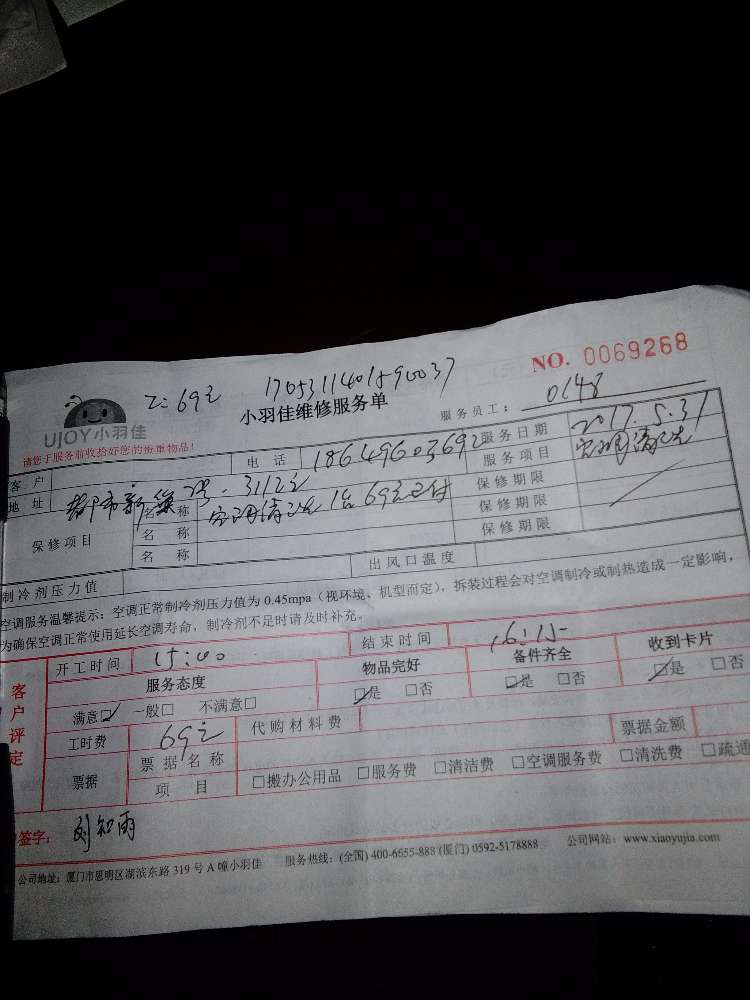 NO. 0069268
1705311401590037
69元
小羽佳维修服务单
服务员工： 0148
UJOY小羽佳
请您于服务前收拾好您的贵重物品！
客 户
电 话 18649603692
服务日期 2017.5.31
地 址
服务项目 空调清洗
保修项目
名 称 空调清洗 1台 69元已付
保修期限
名 称
保修期限
名 称
保修期限
制冷剂压力值
出风口温度
空调服务温馨提示：空调正常制冷剂压力值为 0.45mpa（视环境、机型而定），拆装过程会对空调制冷或制热造成一定影响，
为确保空调正常使用延长空调寿命，制冷剂不足时请及时补充。
客户评定
开工时间 15:40
结束时间 16:15
服务态度
物品完好
备件齐全
收到卡片
满意☑ 一般□ 不满意□
☑是 □否
☑是 □否
☑是 □否
工时费 69元
代购材料费
票据金额
票据
票据名称
项 目
□搬办公用品 □服务费 □清洁费 □空调服务费 □清洗费 □疏通
签字： 刘知雨
公司地址：厦门市思明区湖滨东路 319 号 A 幢小羽佳 服务热线：(全国) 400-6655-888 (厦门) 0592-5178888 公司网站：www.xiaoyujia.com